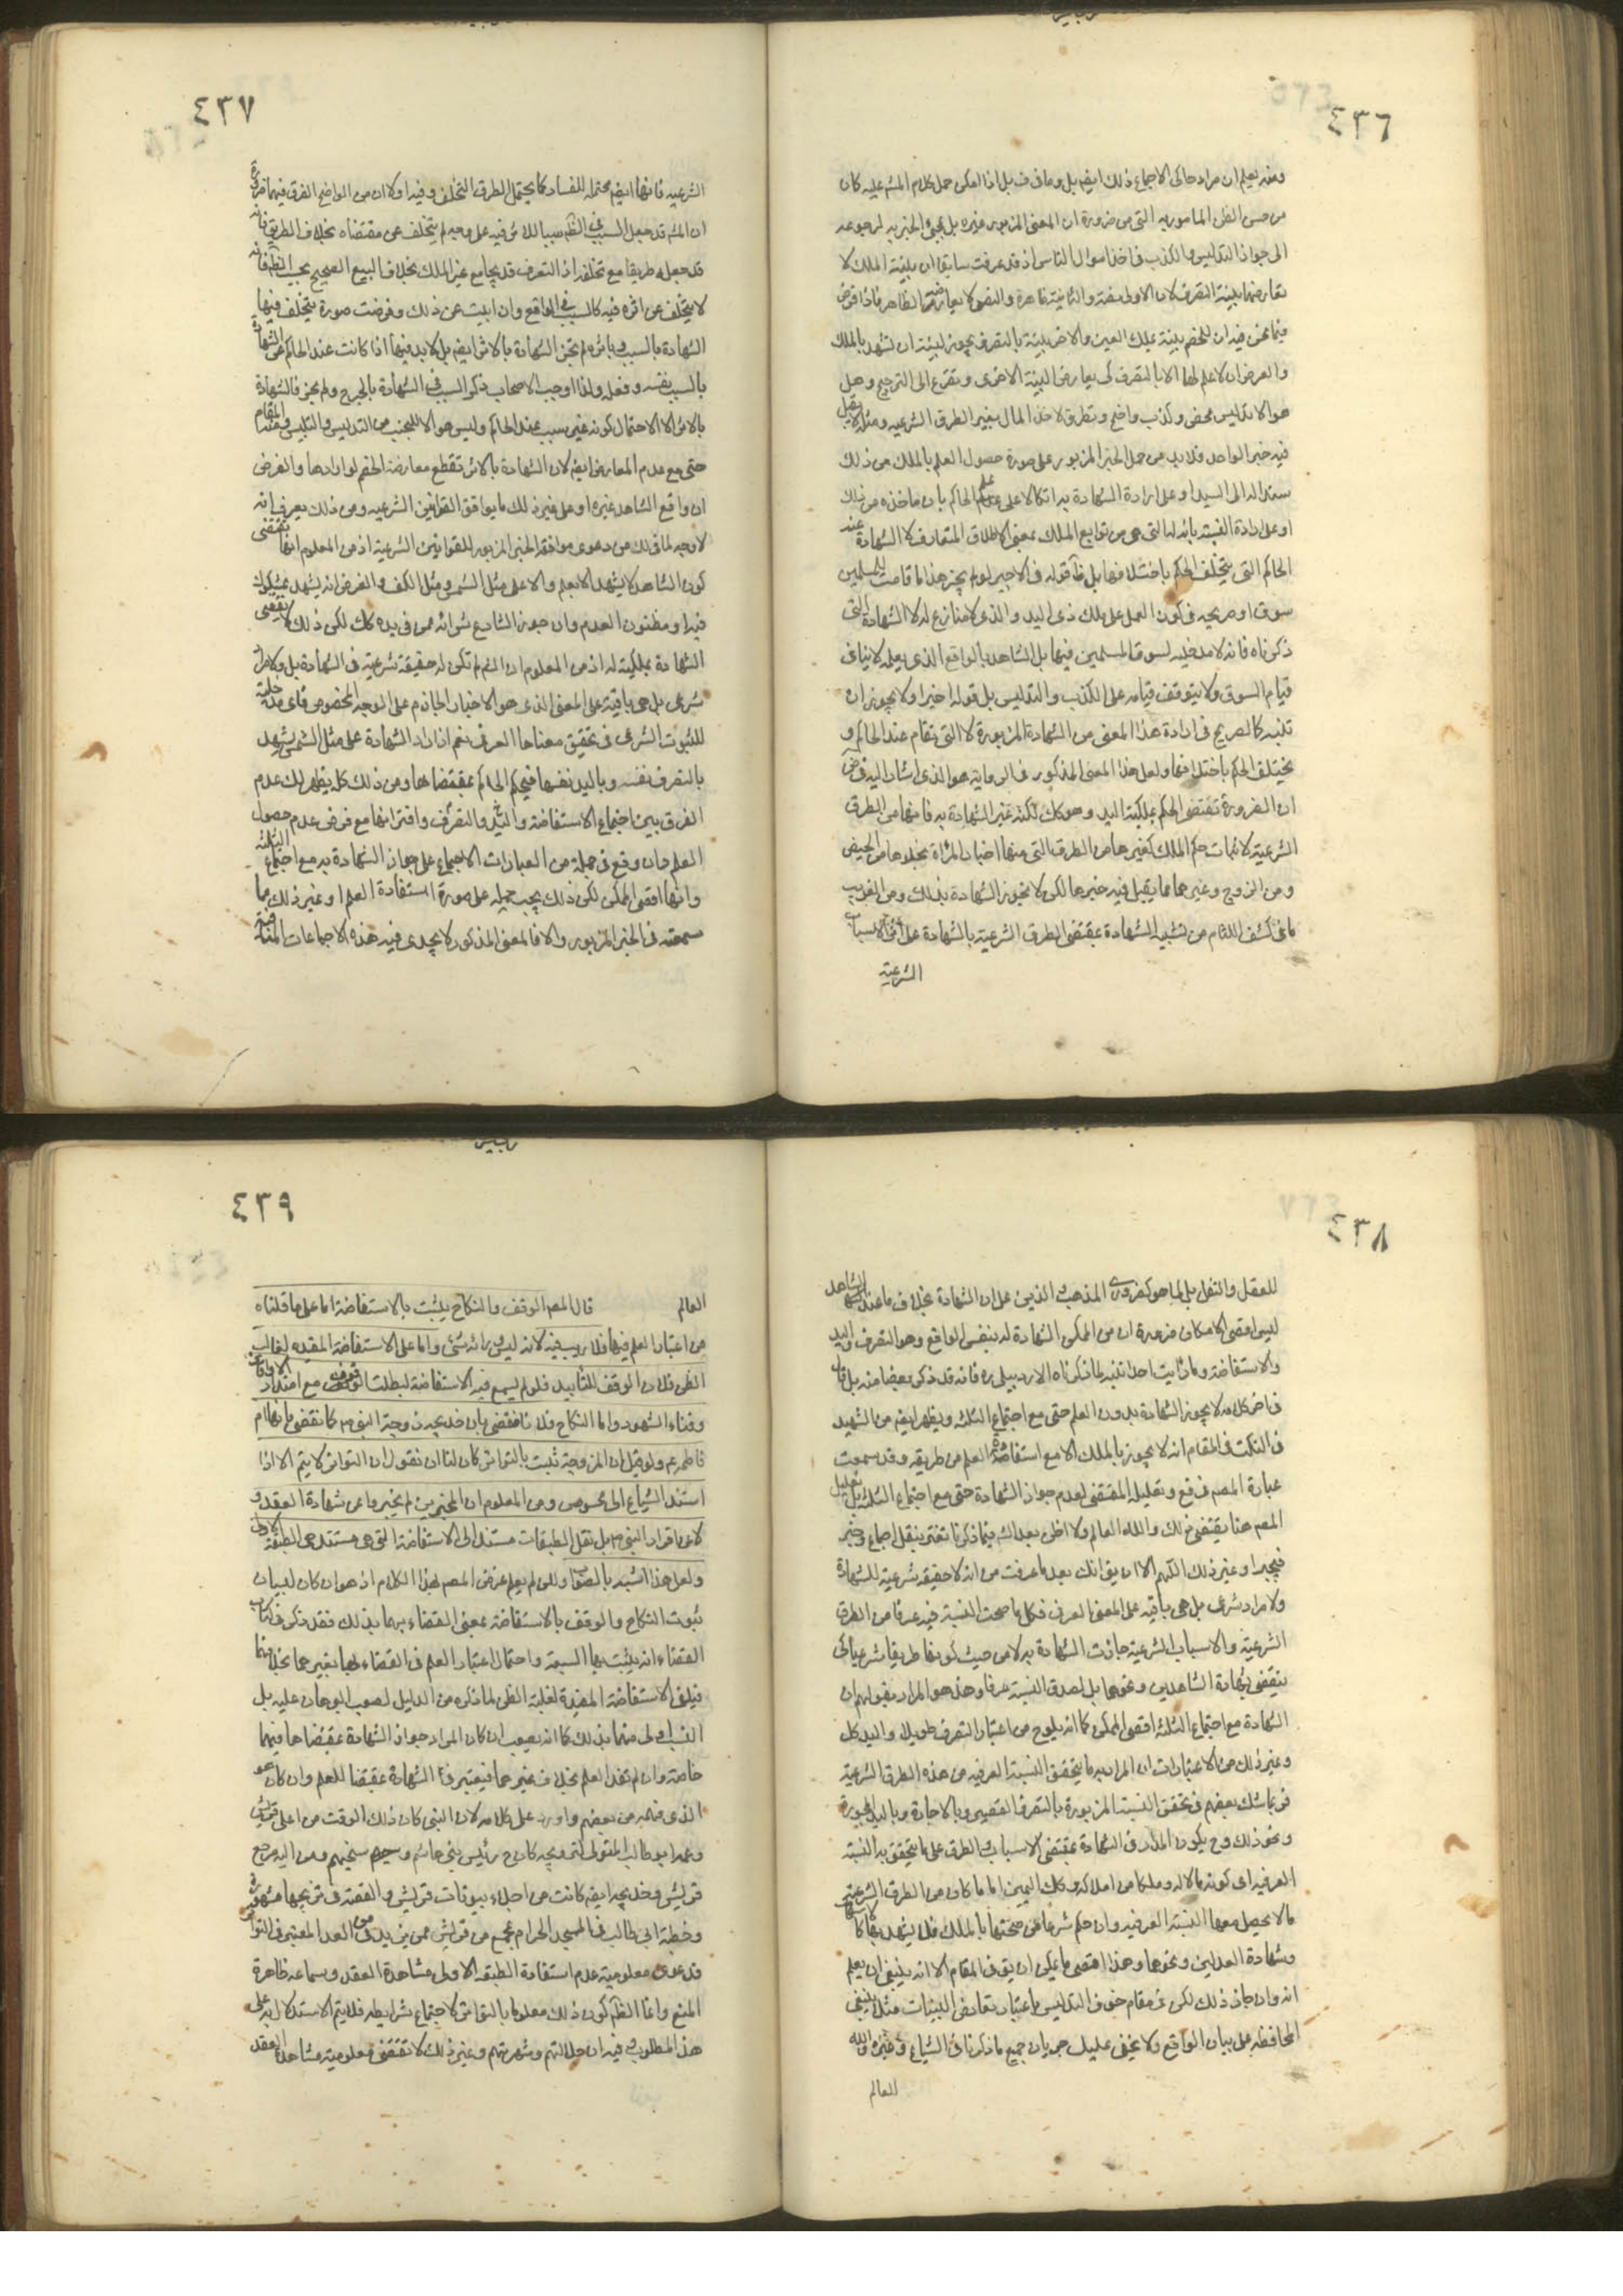 ٤٣٦
ومنه يعلم ان مراد حاكى الاجماع ذلك ايضا بل وما فى ف بل اذا امكن حمل كلام المشهور عليه كان
من حسن الظن المامور به التى من ضرورة ان المعنى المزبور غيره بل مجئ الخبر به لرجوعه
الى جواز التدليس والكذب فى اخذ اموال الناس اذ قد عرفت سابقا ان بينة الملك لا
تعارضها بينة التصرف لان الاولى نص والثانية ظاهرة والنص لا يعارضه الظاهر فاذا فرض
فيما نحن فيه ان للخصم بينة بملك العين والاخر بينة بالتصرف يجوز لبينته ان تشهد بالملك
والفرض ان لا علم لها الا بالتصرف كى يعارض البينة الاخرى ويفزع الى الترجيح وهل
هو الا تدليس محض وكذب واضح وتطرق لاخذ المال بغير الطرق الشرعيه ومثله لا يقبل
فيه خبر الواحد فلا بد من حمل الخبر المزبور على صورة حصول العلم بالملك من ذلك
سنده الى اليد او على ارادة الشهادة به اتكالا على علم الحاكم بان ماخذه من ذلك
او على ارادة النسبة بانه له التى هى من توابع الملك بمعنى الاطلاق المتعارف لا الشهادة عند
الحاكم التى يختلف الحكم باختلافها بل ظاهر قوله فى الاخير لو لم يجز هذا ما قامت للمسلمين
سوق او صريحه فى كون العمل على ملك ذى اليد والذى لا منازع له لا الشهادة التى
ذكرناه فانه لا مدخلية لسوق المسلمين فيها بل الشاهد بالواقع الذى يعلمه لا ينافى
قيام السوق ولا يتوقف قيامه على الكذب والتدليس بل قوله اخيرا ولا يجوز ان
تلبه كالصريح فى ارادة هذا المعنى من الشهادة المزبورة لا التى تقام عند الحاكم و
يختلف الحكم باختلافها ولعل هذا المعنى المذكور فى الرواية هو الذى اشار اليه فى ض
ان الضرورة تقتضى الحكم بملكية اليد وهو كك لكنه غير الشهادة به فانها من الطرق
الشرعية لاثبات حكم الملك كغيرها من الطرق التى منها اخبار المرأة بخلوها من الحيض
ومن الزوج وغيرهما مما يقبل فيه خبرها لكن لا يجوز الشهادة بذلك ومن الغريب
ما فى كشف اللثام من تشبيه الشهادة بمقتضى الطرق الشرعية بالشهادة على اثر الاسباب
الشرعية
٤٣٧
الشرعيه فانها ايضا محتملة للفساد كما يحتمل الطرق التخلف وفيه اولا ان من الواضح الفرق فيهما ضرورة
ان الشارع قد جعل السبب فى الظاهر سببا للاثر فيه على وجه لم يتخلف عن مقتضاه بخلاف الطريق فانه
قد جعله طريقا مع تخلفه اذ التصرف قد يجامع غير الملك بخلاف البيع الصحيح بحسب الظاهر فانه
لا يتخلف عن اثره فيه كالسبب فى الواقع وان ابيت عن ذلك وفرضت صورة يتخلف فيها
الشهادة بالسبب وباثره لم تجز الشهادة بالاثر ايضا بل لا بد فيها اذا كانت عند الحاكم من الشهادة
بالسبب نفسه وفعله ولذا اوجب الاصحاب ذكر السبب فى الشهادة بالجرح ولم يجز فالشهادة
بالاثر الا لاحتمال كونه غير سبب عند الحاكم وليس هو الا للتجنب من التدليس والتلبيس فى المقام
حتى مع عدم المعارض ايضا لان الشهادة بالاثر تقطع معارضة الخصم لو ارادها والفرض
ان واقع الشاهد غيره او على غير ذلك ما يوافق القوانين الشرعيه ومن ذلك يعرف انه
لا وجه لما فى لك من دعوى موافقة الخبر المزبور للقوانين الشرعية اذ من المعلوم انها تقتضى
كون الشاهد لا يشهد الا بعلم والا على مثل الشمس ومثل الكف والفرض انه يشهد بمشكوك
فيه او مظنون العدم وان جوز الشارع شرائه ممن فى يده كك لكن ذلك لا يقتضى
الشهادة بملكيته له اذ من المعلوم ان لم تكن له حقيقة شرعية فى الشهادة بل ولا مراد
شرعى بل هى باقية على المعنى الذى هو الاخبار الجازم على الوجه المخصوص فاى مدخلية
للثبوت الشرعى فى تحقيق معناها العرفى نعم اذا اراد الشهادة على مثل الشمس يشهد
بالتصرف نفسه وباليد نفسها فيحكم الحاكم بمقتضاها ومن ذلك كله يظهر لك عدم
الفرق بين اجتماع الاستفاضة واليد والتصرف وافتراقها مع فرض عدم حصول
العلم وان وقع فى جملة من العبارات الاجماع على جواز الشهادة به مع اجتماع الثلثة
وانها اقصى الممكن لكن ذلك يجب حمله على صورة استفادة العلم او غير ذلك مما
سمعته فى الخبر المزبور والا فالمعنى المذكور لا يجدى فيه هذه الاجماعات المنافية
٤٣٨
للعقل والنقل بل لما هو كضرورى المذهب والدين على ان الشهادة بخلاف ما عند الشاهد
ليس اقصى الامكان ضرورة ان من الممكن الشهادة له بنفس الواقع وهو التصرف واليد
والاستفاضة وما رأيت احدا تنبه لما ذكرناه الا الاردبيلى ره فانه قد ذكر بعضا منه بل قال
فى اخر كلامه لا يجوز الشهادة بدون العلم حتى مع اجتماع الثلثة ويظهر ايضا من الشهيد
فى النكت فى المقام انه لا يجوز بالملك الا مع استفادة العلم من طريقه وقد سمعت
عبارة المصنف فى فع وتعليله المقتضى لعدم جواز الشهادة حتى مع اجتماع الثلثة بل تعليل
المصم هنا يقتضى ذلك والله العالم ولا اظن بعد التامل فيما ذكرنا تغتر بنقل اجماع وخبر
فيجبر او غير ذلك اللهم الا ان يق انك بعد ما عرفت من انه لا حقيقه شرعية للشهادة
ولا مراد شرعى بل هى باقيه على المعنى العرفى فكل ما صحت النسبة فيه عرفا من الطرق
الشرعية والاسباب الشرعية جازت الشهادة به لا من حيث كونها طريقا شرعيا كى
ينتقض بشهادة الشاهدين ونحوها بل لصدق النسبة عرفا وهذا هو المراد بقولهم ان
الشهادة مع اجتماع الثلثة اقصى الممكن كما انه يلوح من اعتبار التصرف طويلا واليد كك
وغير ذلك من الاعتبارات ان المراد به ما يتحقق النسبة العرفيه من هذه الطرق الشرعية
فربما شك بعضهم فى تحقق النسبة المزبورة بالتصرف القصير وبالاجارة وباليد المجردة
ونحو ذلك وح يكون المدار فى الشهادة بمقتضى الاسباب والطرق على ما يتحقق به النسبة
العرفيه اى كونه مالا له وملكا من املاكه وكك اليمين اما ما كان من الطرق الشرعية
ما لا يحصل معها النسبة العرفيه وان حكم شرعا على صحتها بالملك فلا يشهد بها كاستصحاب
وشهادة العدلين ونحوها وهذا اقصى ما يمكن ان يق فى المقام الا انه ينبغى ان يعلم
انه وان جاز ذلك لكن فى مقام خوف التدليس باعتبار تعارض البينات مثلا ينبغى
المحافظة على بيان الواقع ولا يخفى عليك جريان جميع ما ذكرنا فى الشياع وغيره والله
العالم
٤٣٩
العالم قال المصم الوقف والنكاح يثبت بالاستفاضة اما على ما قلناه
من اعتبار العلم فيها فلا ريب فيه لانه ليس ورائه شئ واما على الاستفاضة المفيده لغالب
الظن فلان الوقف للتابيد فلو لم يسمع فيه الاستفاضة لبطلت الوقوف مع امتداد الاوقات
وفناء الشهود واما النكاح فلانا نقضى بان خديجه زوجة النبى ص كما نقضى بانها ام
فاطمه ع ولو قيل ان الزوجية تثبت بالتواتر كان لنا ان نقول ان التواتر لا يتم الا اذا
استند الشياع الى محسوس ومن المعلوم ان المخبرين لم يخبروا عن شهادة العقد و
لا عن اقرار النبى ص بل نقل الطبقات مستند الى الاستفاضة التى هى مستند الطبقة الاولى
ولعل هذا اشبه بالصواب ولكن لم يعلم غرض المصم بهذا الكلام اذ هو ان كان لبيان
ثبوت النكاح والوقف بالاستفاضة بمعنى القضاء بهما بذلك فقد ذكر فى كتاب
القضاء انه يثبت بها السبعة واحتمال اعتبار العلم فى القضاء بها بغيرهما بخلافهما
فيكفى الاستفاضة المفيدة لغلبة الظن لما ذكره من الدليل لصعب البرهان عليه بل
النسب اولى منهما بذلك كما انه يصعب ان كان المراد جواز الشهادة بمقتضاها فيهما
خاصة وان لم تفد العلم بخلاف غيرهما فيعتبر فى الشهادة بمقتضا للعلم وان كان هو
الذى فهمه من بعضهم واورد على كلامه لان النبى كان ذلك الوقت من اعلى قريش
وعمه ابو طالب المتولى لتزويجه كان ح رئيس بنى هاشم وشيخهم ومن اليه مرجع
قريش وخديجه ايضا كانت من اجلاء بيوتات قريش والقصة فى تزويجها مشهورة
وخطبة ابى طالب فى المسجد الحرام بمجمع من قريش ممن يزيد عن العدد المعتبر فى التواتر
فدعوى معلومية عدم استفادة الطبقة الاولى مشاهدة العقد وسماعه ظاهرة
المنع وانما الظاهر كون ذلك معلوما بالتواتر لاجتماع شرايطه فلا يتم الاستدلال به على
هذا المطلوب وفيه ان جلالتهم وشهرتهم وغير ذلك لا تقتضى معلومية مشاهدة العقد